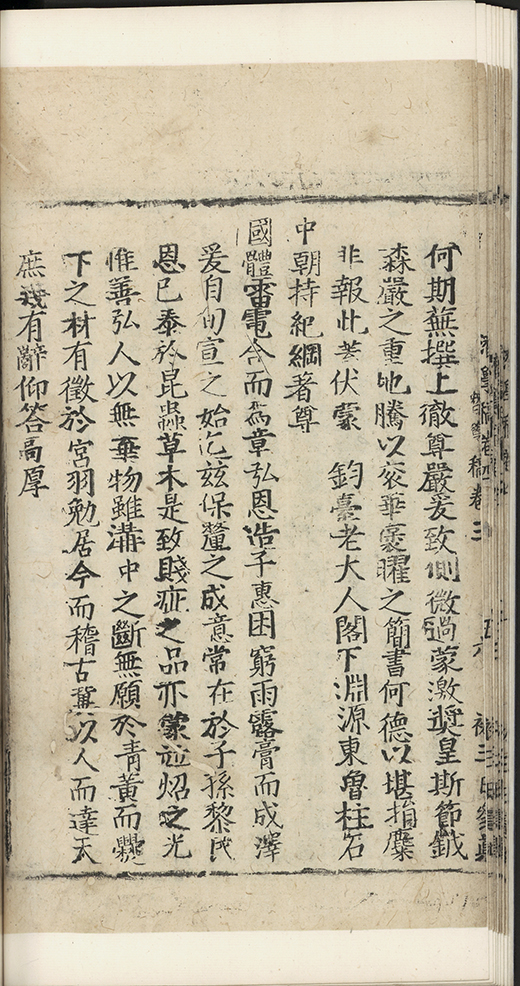 何期蕪撰上徹尊嚴爰致側微過蒙激奬皇斯節鉞
森嚴之重地騰以袞華褒曜之簡書何德以堪捐糜
非報此蓋伏蒙 鈞臺老大人閣下淵源東魯柱石
中朝持紀綱著尊
國體雷電合而為章弘恩浩子惠困窮雨露膏而成澤
爰自旬宣之始迄玆保釐之成意常在於子孫黎民
恩已泰於昆蟲草木是致賤疵之品亦蒙竝炤之光
惟善弘人以無棄物雖溝中之斷無願於青黃而爨
下之材有徵於宮羽勉居今而稽古冀以人而達天
庶幾有辭仰答高厚